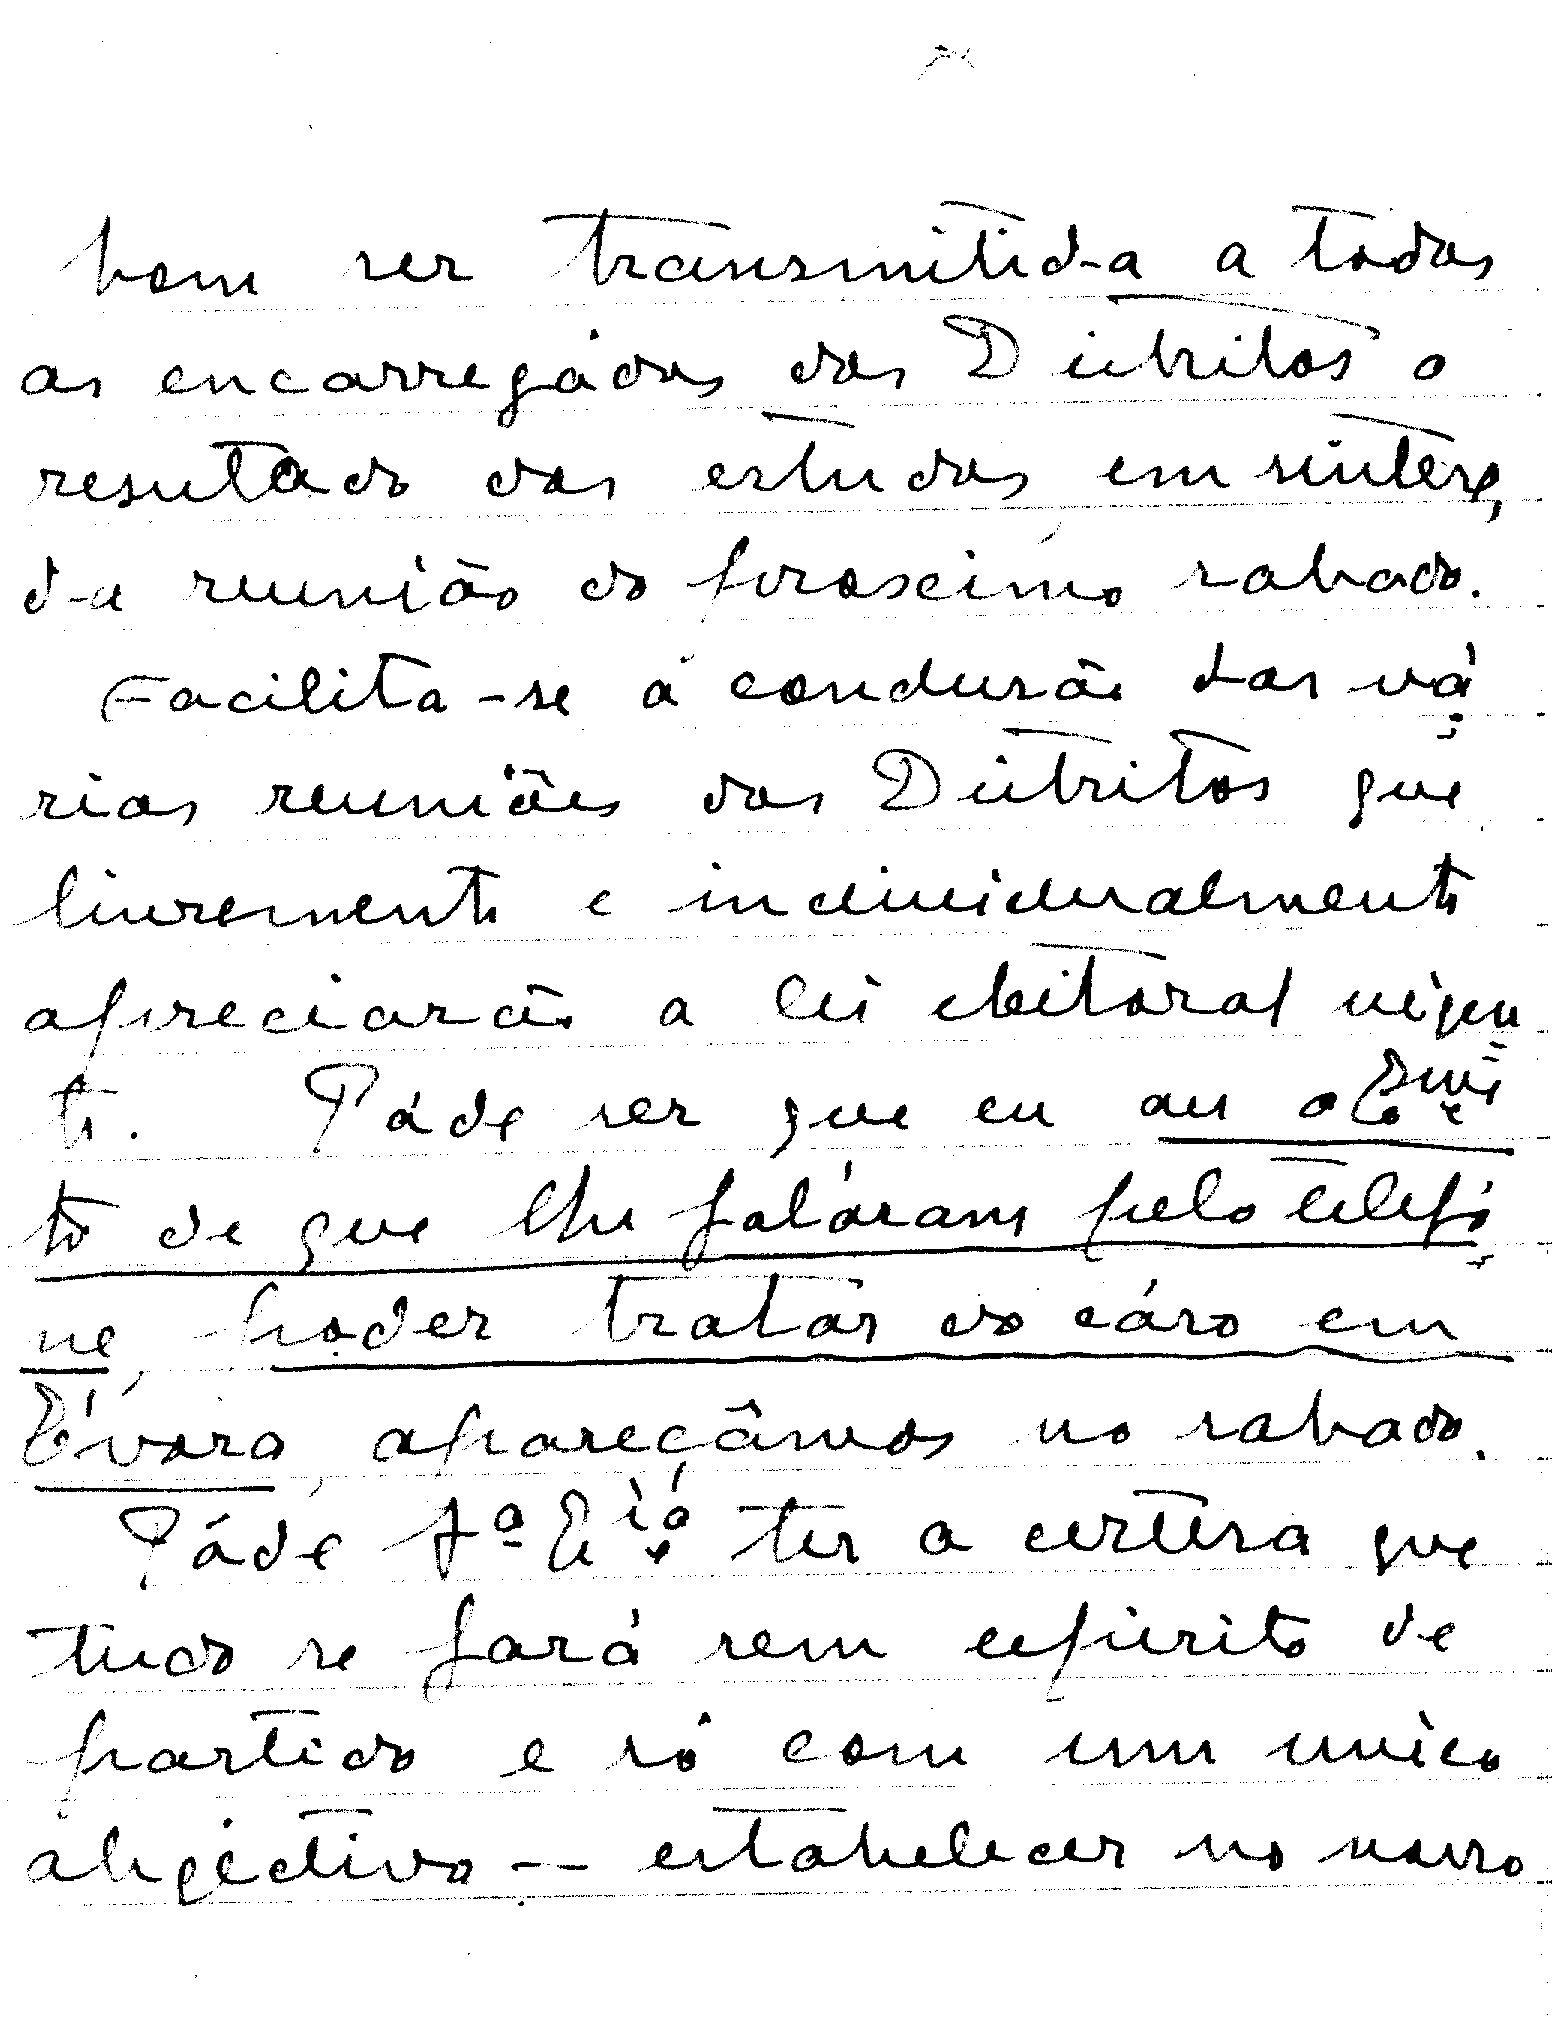 bom ser transmitida a todos
os encarregádos dos Distritos o
resutado dos estudos em sintese,
da reunião do proximo sabado.
Facilita-se a condusão das vá
rias reuniões dos Distritos que
livremente e individualmente
apreciarão a lei eleitoral vigen
te. Póde ser que eu ou o
to de que lhe faláram pelo telefó
ne, poder tratar do cáso em
Évora, apareçâmos no sabado.
Póde S.ª Ex.ciá ter a certesa que
tudo se fará sem espirito de
partido e só com um unico
objéctivo — estabelecer no nosso